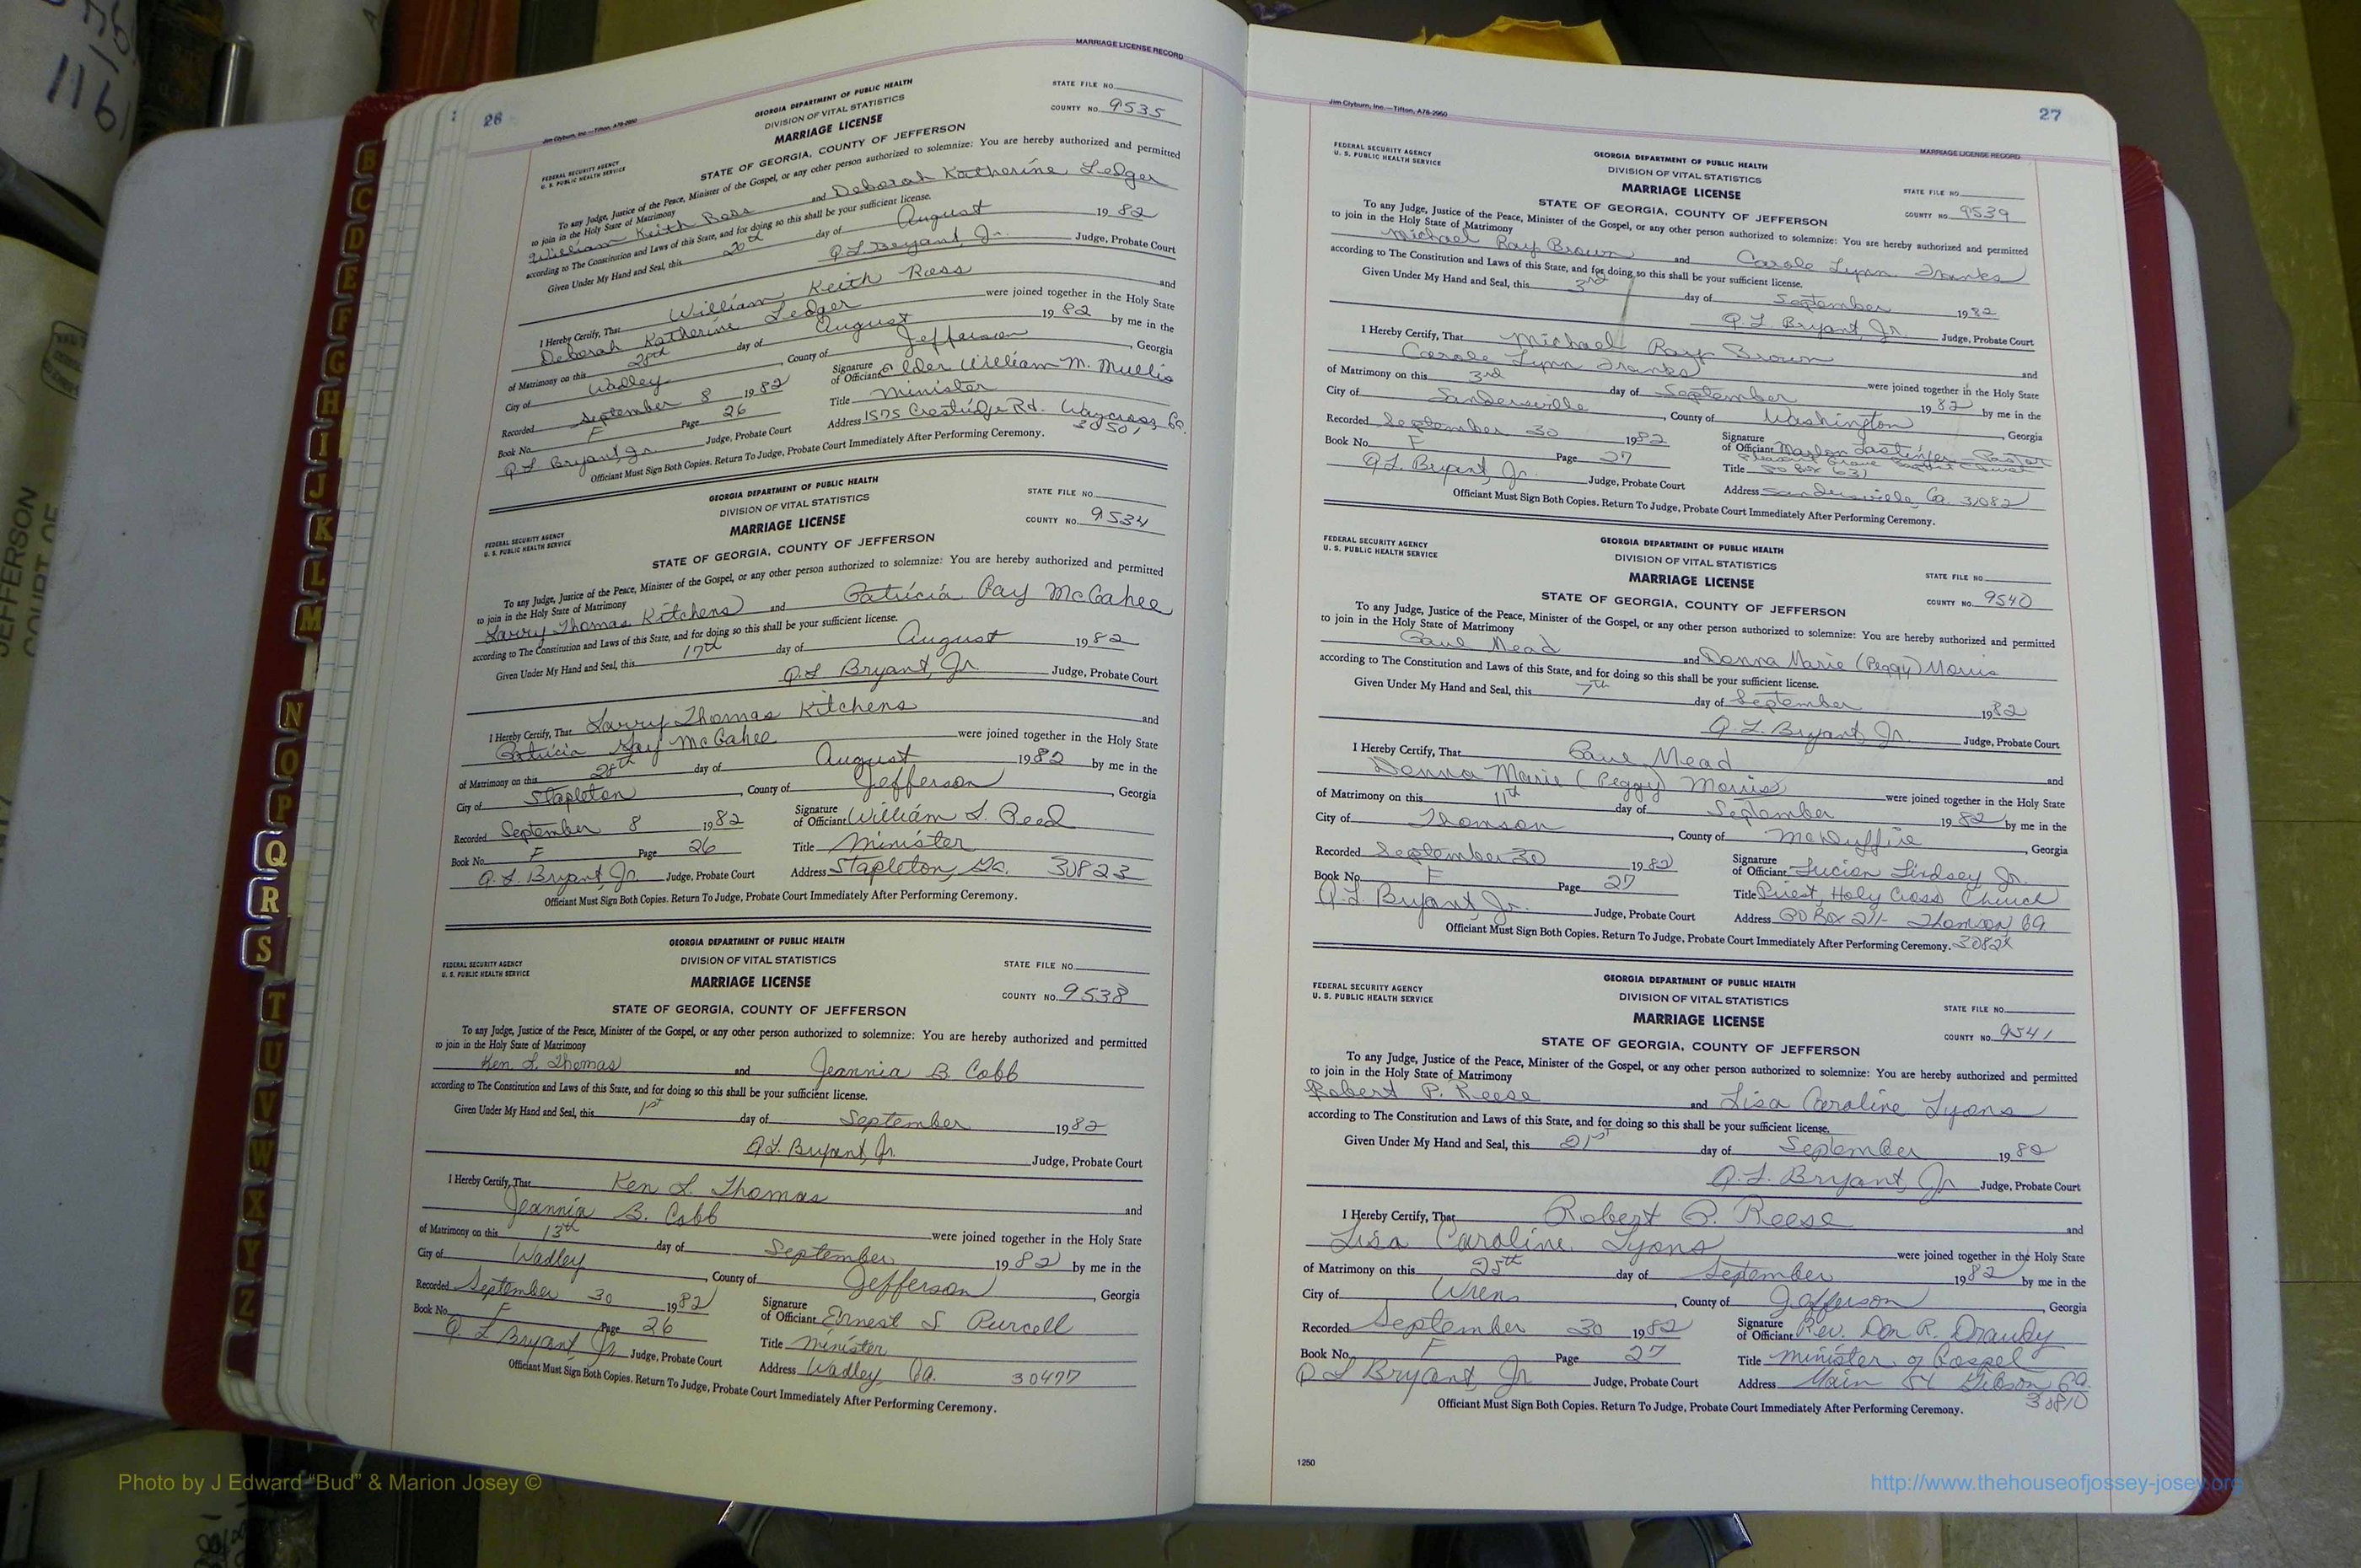 26
Jim Clyburn, Inc.—Tifton, A78-2950
MARRIAGE LICENSE RECORD
FEDERAL SECURITY AGENCY
U. S. PUBLIC HEALTH SERVICE
GEORGIA DEPARTMENT OF PUBLIC HEALTH
DIVISION OF VITAL STATISTICS
MARRIAGE LICENSE
STATE FILE NO.
COUNTY NO. 9535
STATE OF GEORGIA, COUNTY OF JEFFERSON
To any Judge, Justice of the Peace, Minister of the Gospel, or any other person authorized to solemnize: You are hereby authorized and permitted
to join in the Holy State of Matrimony
William Keith and Deborah Katherine Ledger
according to The Constitution and Laws of this State, and for doing so this shall be your sufficient license.
Given Under My Hand and Seal, this 20th day of August 1982
Q.L. Bryant, Jr. Judge, Probate Court
I Hereby Certify, That William Keith and
Deborah Katherine Ledger were joined together in the Holy State
of Matrimony on this 28th day of August 1982 by me in the
City of Wadley, County of Jefferson, Georgia
Recorded September 8 1982
Signature of Officiant Elder William M. Mullis
Book No. F Page 26
Title Minister
Q.L. Bryant, Jr. Judge, Probate Court
Address 1575 Crestridge Rd. Waycross, Ga.
Officiant Must Sign Both Copies. Return To Judge, Probate Court Immediately After Performing Ceremony.
FEDERAL SECURITY AGENCY
U. S. PUBLIC HEALTH SERVICE
GEORGIA DEPARTMENT OF PUBLIC HEALTH
DIVISION OF VITAL STATISTICS
MARRIAGE LICENSE
STATE FILE NO.
COUNTY NO. 9534
STATE OF GEORGIA, COUNTY OF JEFFERSON
To any Judge, Justice of the Peace, Minister of the Gospel, or any other person authorized to solemnize: You are hereby authorized and permitted
to join in the Holy State of Matrimony
Larry Thomas Kitchens and Patricia Gay McGahee
according to The Constitution and Laws of this State, and for doing so this shall be your sufficient license.
Given Under My Hand and Seal, this 17th day of August 1982
Q.L. Bryant, Jr. Judge, Probate Court
I Hereby Certify, That Larry Thomas Kitchens and
Patricia Gay McGahee were joined together in the Holy State
of Matrimony on this 28th day of August 1982 by me in the
City of Stapleton, County of Jefferson, Georgia
Recorded September 8 1982
Signature of Officiant William L. Reed
Book No. F Page 26
Title Minister
Q.L. Bryant, Jr. Judge, Probate Court
Address Stapleton, Ga. 30823
Officiant Must Sign Both Copies. Return To Judge, Probate Court Immediately After Performing Ceremony.
FEDERAL SECURITY AGENCY
U. S. PUBLIC HEALTH SERVICE
GEORGIA DEPARTMENT OF PUBLIC HEALTH
DIVISION OF VITAL STATISTICS
MARRIAGE LICENSE
STATE FILE NO.
COUNTY NO. 9538
STATE OF GEORGIA, COUNTY OF JEFFERSON
To any Judge, Justice of the Peace, Minister of the Gospel, or any other person authorized to solemnize: You are hereby authorized and permitted
to join in the Holy State of Matrimony
Ken L. Thomas and Jeannia B. Cobb
according to The Constitution and Laws of this State, and for doing so this shall be your sufficient license.
Given Under My Hand and Seal, this 1st day of September 1982
Q.L. Bryant, Jr. Judge, Probate Court
I Hereby Certify, That Ken L. Thomas and
Jeannia B. Cobb were joined together in the Holy State
of Matrimony on this 13th day of September 1982 by me in the
City of Wadley, County of Jefferson, Georgia
Recorded September 30 1982
Signature of Officiant Ernest S. Purcell
Book No. F Page 26
Title Minister
Q L Bryant, Jr Judge, Probate Court
Address Wadley, Ga. 30477
Officiant Must Sign Both Copies. Return To Judge, Probate Court Immediately After Performing Ceremony.
Jim Clyburn, Inc.—Tifton, A78-2950
27
MARRIAGE LICENSE RECORD
FEDERAL SECURITY AGENCY
U. S. PUBLIC HEALTH SERVICE
GEORGIA DEPARTMENT OF PUBLIC HEALTH
DIVISION OF VITAL STATISTICS
MARRIAGE LICENSE
STATE FILE NO.
COUNTY NO. 9539
STATE OF GEORGIA, COUNTY OF JEFFERSON
To any Judge, Justice of the Peace, Minister of the Gospel, or any other person authorized to solemnize: You are hereby authorized and permitted
to join in the Holy State of Matrimony
Michael Ray Brown and Carole Lynn Franks
according to The Constitution and Laws of this State, and for doing so this shall be your sufficient license.
Given Under My Hand and Seal, this 3rd day of September 1982
Q.L. Bryant, Jr. Judge, Probate Court
I Hereby Certify, That Michael Ray Brown and
Carole Lynn Franks were joined together in the Holy State
of Matrimony on this 3rd day of September 1982 by me in the
City of Sandersville, County of Washington, Georgia
Recorded September 30 1982
Signature of Officiant Pastor
Book No. F Page 27
Pleasant Grove Baptist Church
Title PO Box 631
Q.L. Bryant, Jr. Judge, Probate Court
Address Sandersville, Ga. 31082
Officiant Must Sign Both Copies. Return To Judge, Probate Court Immediately After Performing Ceremony.
FEDERAL SECURITY AGENCY
U. S. PUBLIC HEALTH SERVICE
GEORGIA DEPARTMENT OF PUBLIC HEALTH
DIVISION OF VITAL STATISTICS
MARRIAGE LICENSE
STATE FILE NO.
COUNTY NO. 9540
STATE OF GEORGIA, COUNTY OF JEFFERSON
To any Judge, Justice of the Peace, Minister of the Gospel, or any other person authorized to solemnize: You are hereby authorized and permitted
to join in the Holy State of Matrimony
Paul Mead and Donna Marie (Peggy) Morris
according to The Constitution and Laws of this State, and for doing so this shall be your sufficient license.
Given Under My Hand and Seal, this 7th day of September 1982
Q.L. Bryant, Jr. Judge, Probate Court
I Hereby Certify, That Paul Mead and
Donna Marie (Peggy) Morris were joined together in the Holy State
of Matrimony on this 11th day of September 1982 by me in the
City of Thomson, County of McDuffie, Georgia
Recorded September 30 1982
Signature of Officiant Lucian Lindsey Jr.
Book No. F Page 27
Title Priest, Holy Cross Church
Q.L. Bryant, Jr. Judge, Probate Court
Address PO Box 211- Thomson, Ga.
Officiant Must Sign Both Copies. Return To Judge, Probate Court Immediately After Performing Ceremony. 30824
FEDERAL SECURITY AGENCY
U. S. PUBLIC HEALTH SERVICE
GEORGIA DEPARTMENT OF PUBLIC HEALTH
DIVISION OF VITAL STATISTICS
MARRIAGE LICENSE
STATE FILE NO.
COUNTY NO. 9541
STATE OF GEORGIA, COUNTY OF JEFFERSON
To any Judge, Justice of the Peace, Minister of the Gospel, or any other person authorized to solemnize: You are hereby authorized and permitted
to join in the Holy State of Matrimony
Robert P. Reese and Lisa Caroline Lyons
according to The Constitution and Laws of this State, and for doing so this shall be your sufficient license.
Given Under My Hand and Seal, this 21st day of September 1982
Q.L. Bryant, Jr Judge, Probate Court
I Hereby Certify, That Robert P. Reese and
Lisa Caroline Lyons were joined together in the Holy State
of Matrimony on this 25th day of September 1982 by me in the
City of Wrens, County of Jefferson, Georgia
Recorded September 30 1982
Signature of Officiant Rev. Don R.
Book No. F Page 27
Title Minister of Gospel
Q L Bryant, Jr Judge, Probate Court
Address Main St Gibson Ga.
30810
Officiant Must Sign Both Copies. Return To Judge, Probate Court Immediately After Performing Ceremony.
1250
B
C
D
E
F
G
H
I
J
K
L
M
N
O
P
Q
R
S
T
U
V
W
X
Y
Z
JEFFERSON
COURT OF
Photo by J Edward "Bud" & Marion Josey ©
http://www.thehouseofjossey-josey.org